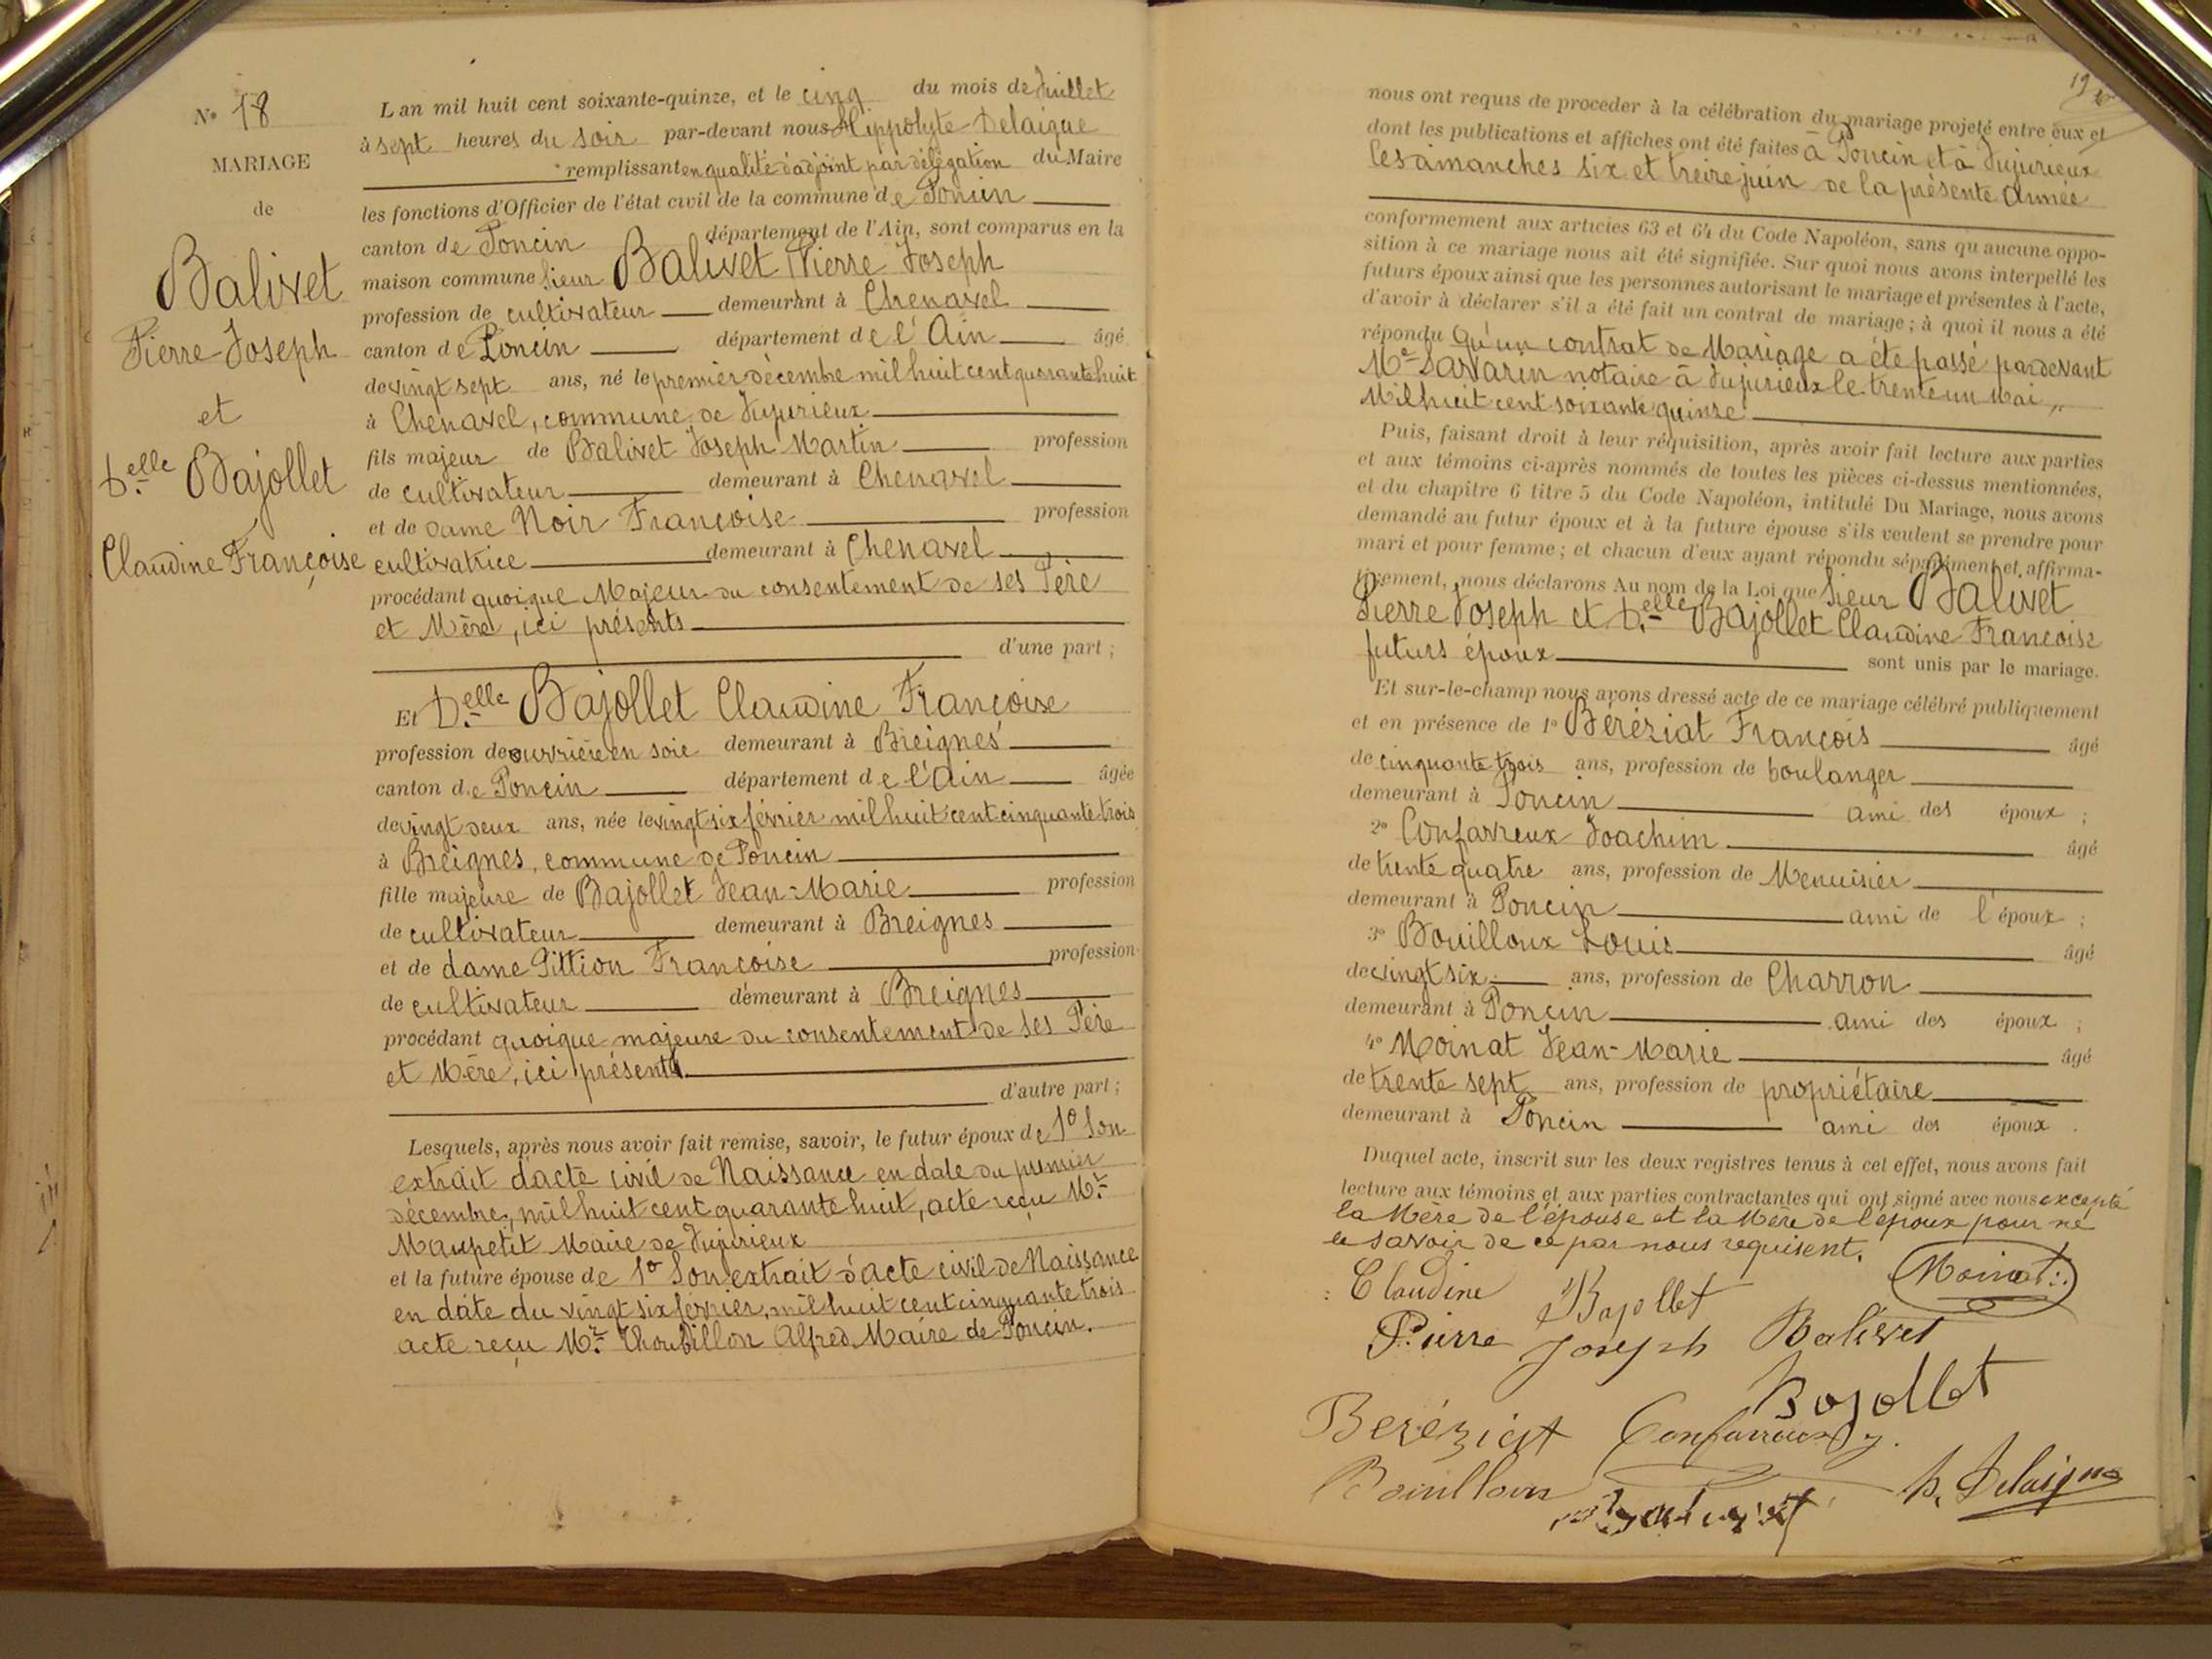 N° 18
MARIAGE
de
Balivet
Pierre Joseph
et
D.elle Bajollet
Claudine Françoise
L'an mil huit cent soixante-quinze, et le cinq du mois de Juillet
à sept heures du soir par-devant nous Hippolyte Delaigue
remplissant en qualité d'adjoint par délégation du Maire
les fonctions d'Officier de l'état civil de la commune de Poncin
canton de Poncin département de l'Ain, sont comparus en la
maison commune Sieur Balivet Pierre Joseph
profession de cultivateur demeurant à Chenavel
canton de Poncin département de l'Ain âgé
de vingt sept ans, né le premier décembre mil huit cent quarante huit
à Chenavel, commune de Jujurieux
fils majeur de Balivet Joseph Martin profession
de cultivateur demeurant à Chenavel
et de dame Noir Françoise profession
cultivatrice demeurant à Chenavel
procédant quoique Majeur du consentement de ses Père
et Mère, ici présents
d'une part ;
Et D.elle Bajollet Claudine Françoise
profession de ouvrière en soie demeurant à Breignes
canton de Poncin département de l'Ain âgée
de vingt deux ans, née le vingt six février mil huit cent cinquante trois
à Breignes, commune de Poncin
fille majeure de Bajollet Jean-Marie profession
de cultivateur demeurant à Breignes
et de dame Pittion Françoise profession
de cultivateur demeurant à Breignes
procédant quoique majeure du consentement de ses Père
et Mère, ici présents
d'autre part ;
Lesquels, après nous avoir fait remise, savoir, le futur époux de 1° Son
extrait d'acte civil de Naissance en date du premier
décembre, mil huit cent quarante huit, acte reçu Mr
Maupetit Maire de Jujurieux
et la future épouse de 1° Son extrait d'acte civil de Naissance
en date du vingt six février, mil huit cent cinquante trois
acte reçu Mr Thoubillon Alfred Maire de Poncin.
19
nous ont requis de proceder à la célébration du mariage projeté entre eux et
dont les publications et affiches ont été faites à Poncin et à Jujurieux
les dimanches six et treize juin de la présente Année
conformement aux articles 63 et 64 du Code Napoléon, sans qu'aucune oppo-
sition à ce mariage nous ait été signifiée. Sur quoi nous avons interpellé les
futurs époux ainsi que les personnes autorisant le mariage et présentes à l'acte,
d'avoir à déclarer s'il a été fait un contrat de mariage ; à quoi il nous a été
répondu Qu'un contrat de Mariage a été passé pardevant
Me Savarin notaire à Jujurieux le trente un Mai
Mil huit cent soixante quinze
Puis, faisant droit à leur réquisition, après avoir fait lecture aux parties
et aux témoins ci-après nommés de toutes les pièces ci-dessus mentionnées,
et du chapitre 6 titre 5 du Code Napoléon, intitulé Du Mariage, nous avons
demandé au futur époux et à la future épouse s'ils veulent se prendre pour
mari et pour femme ; et chacun d'eux ayant répondu séparément et affirma-
tivement, nous déclarons Au nom de la Loi que Sieur Balivet
Pierre Joseph et D.elle Bajollet Claudine Françoise
futurs époux sont unis par le mariage.
Et sur-le-champ nous avons dressé acte de ce mariage célébré publiquement
et en présence de 1° Béréziat François âgé
de cinquante trois ans, profession de boulanger
demeurant à Poncin ami des époux ;
2° Confavreux Joachim âgé
de trente quatre ans, profession de Menuisier
demeurant à Poncin ami de l'époux ;
3° Bouilloux Louis âgé
de vingt six ans, profession de Charron
demeurant à Poncin ami des époux ;
4° Moinat Jean-Marie âgé
de trente sept ans, profession de propriétaire
demeurant à Poncin ami des époux.
Duquel acte, inscrit sur les deux registres tenus à cet effet, nous avons fait
lecture aux témoins et aux parties contractantes qui ont signé avec nous excepté
la Mère de l'épouse et la Mère de l'époux pour ne
le savoir de ce par nous requisent.
Claudine Bajollet Moinat
Pierre Joseph Balivet
Bajollet
Béréziat Confavreux J.
Bouilloux h. Delaigue
Balivet